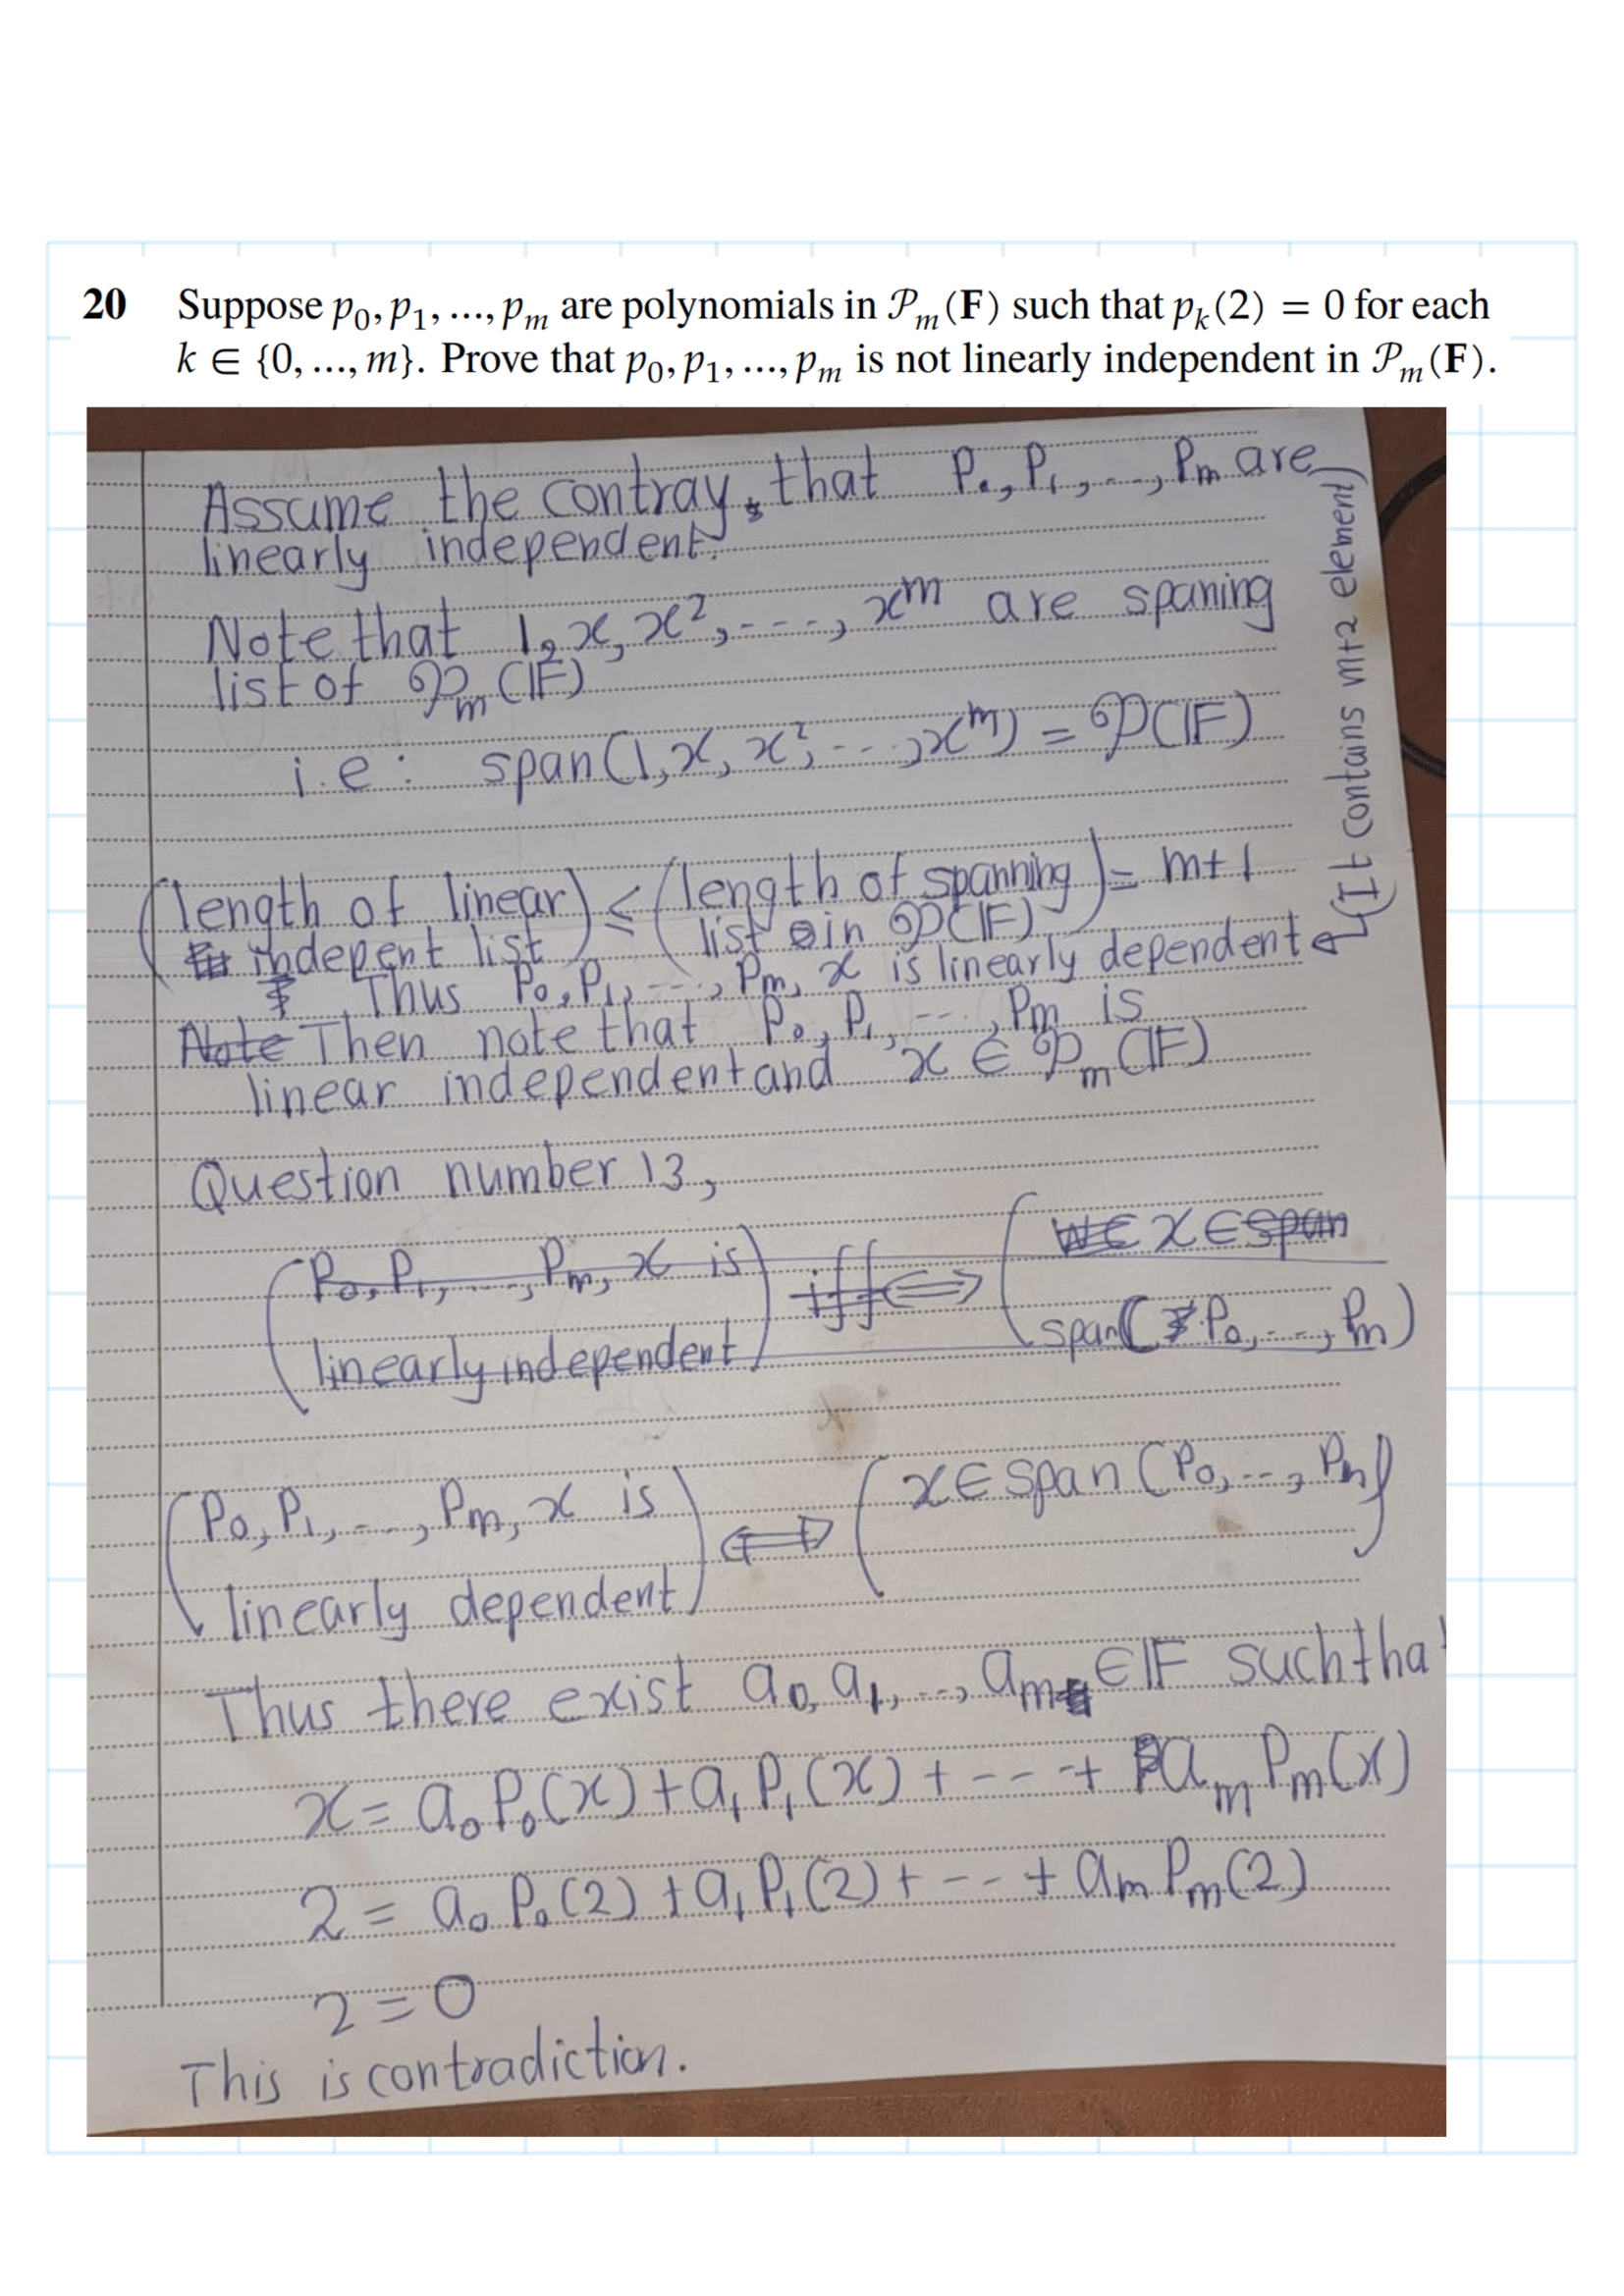 20 Suppose p₀, p₁, ..., pₘ are polynomials in 𝒫ₘ(𝐅) such that pₖ(2) = 0 for each
k ∈ {0, ..., m}. Prove that p₀, p₁, ..., pₘ is not linearly independent in 𝒫ₘ(𝐅).
Assume the contray, that P₀, P₁, ..., Pₘ are
linearly independent.
Note that 1, x, x², ----, xᵐ are spaning
list of 𝒫ₘ(𝔽)
i.e: span(1, x, x², ---, xᵐ) = 𝒫(𝔽)
(length of linear indepent list) ≤ (length of spanning list in 𝒫(𝔽)) = m+1
Thus P₀, P₁, ---, Pₘ, x is linearly dependent
(It contains m+2 element)
Note Then note that P₀, P₁, ---, Pₘ is
linear independent and x ∈ 𝒫ₘ(𝔽)
Question number 13,
(P₀, P₁, ..., Pₘ, x is linearly independent) iff ⟺ (x ∈ span
span(P₀, ---, Pₘ)
(P₀, P₁, ---, Pₘ, x is linearly dependent) ⟺ (x ∈ span(P₀, ---, Pₘ))
Thus there exist a₀, a₁, ..., aₘ ∈ 𝔽 such that
x = a₀P₀(x) + a₁P₁(x) + --- + aₘPₘ(x)
2 = a₀P₀(2) + a₁P₁(2) + --- + aₘPₘ(2)
2 = 0
This is contradiction.